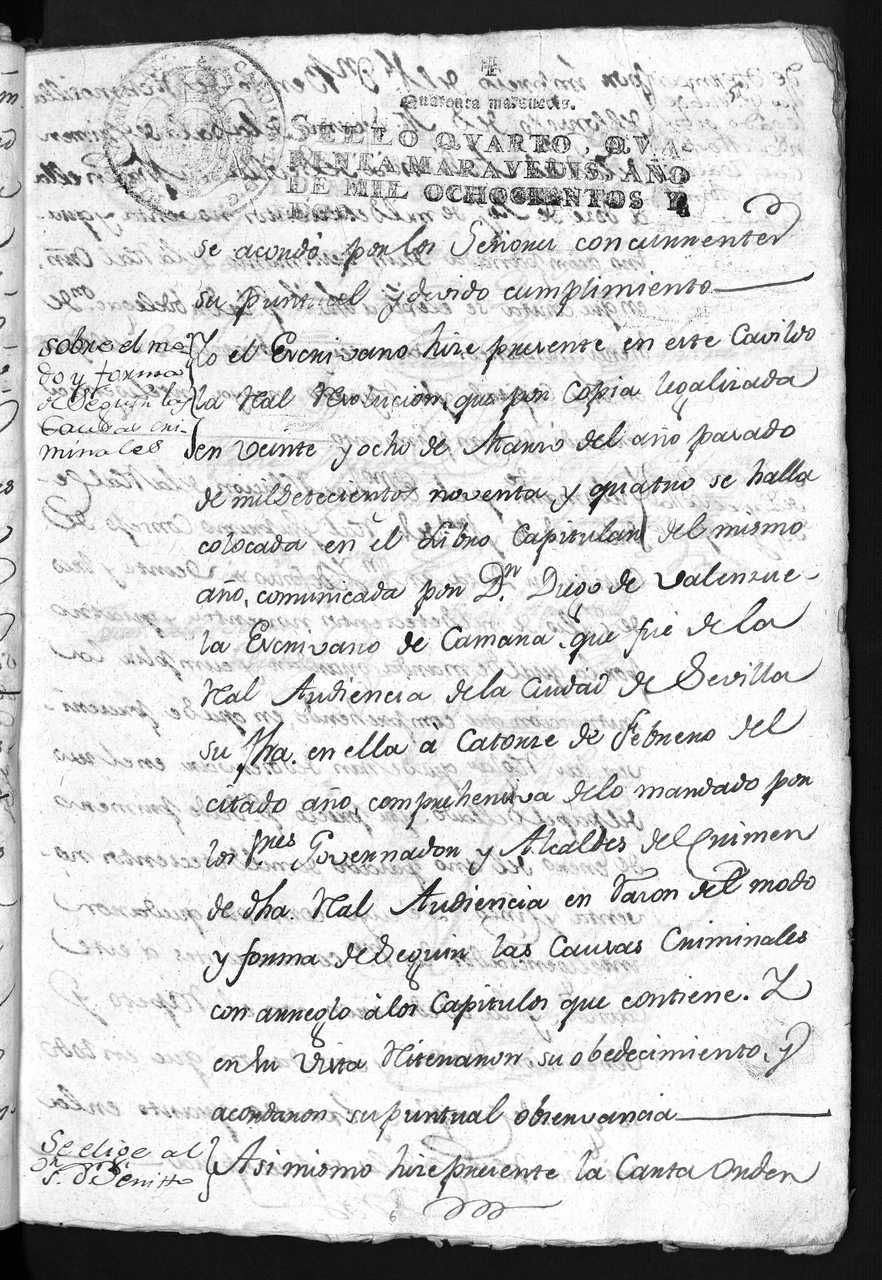 Quarenta maravedis.
SELLO QVARTO, QVA-
RENTA MARAVEDIS, AÑO
DE MIL OCHOCIENTOS Y
se acordó por los Señores concurrentes
su puntual y devido cumplimiento
sobre el mo-
do y forma
de Seguir las
Causas cri-
minales
Yo el Escrivano hize presente en este Cavildo
la Real Resolucion, que por Copia legalizada
en Veinte y ocho de Marzo del año pasado
de mil Setecientos noventa y quatro se halla
colocada en el Libro Capitular del mismo
año, comunicada por Dn. Diego de Valenzue-
la Escrivano de Camara que fué de la
Real Audiencia de la Ciudad de Sevilla
su fha. en ella à Catorze de Febrero del
citado año, comprehensiva delo mandado por
los Sres Governador y Alcaldes del Crimen
de dha. Real Audiencia en razon del modo
y forma de Seguir las Causas Criminales
con arreglo à los Capitulos que contiene. Y
en su Vista Riteraron su obedecimiento, y
acordaron su puntual observancia
Se elige al
Asimismo hize presente la Carta Orden